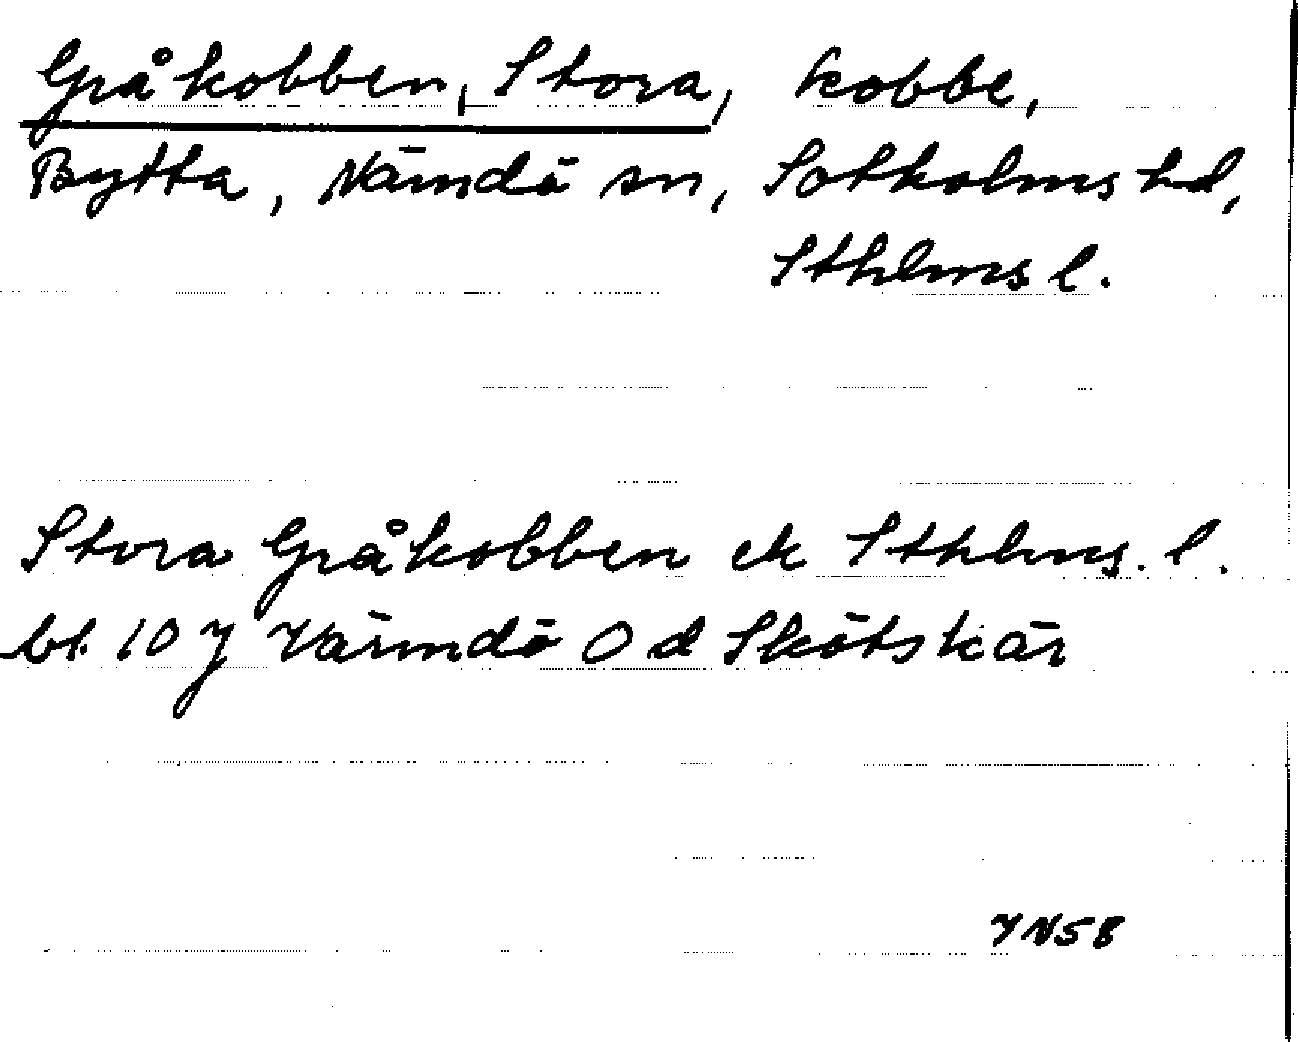 Gråkobben, Stora, kobbe,
Bytta, Nämdö sn, Sotholms hd,
Sthlms l.
Stora Gråkobben ek Sthlms. l.
bl. 10 Y Värmdö O d Skötskär
YN58